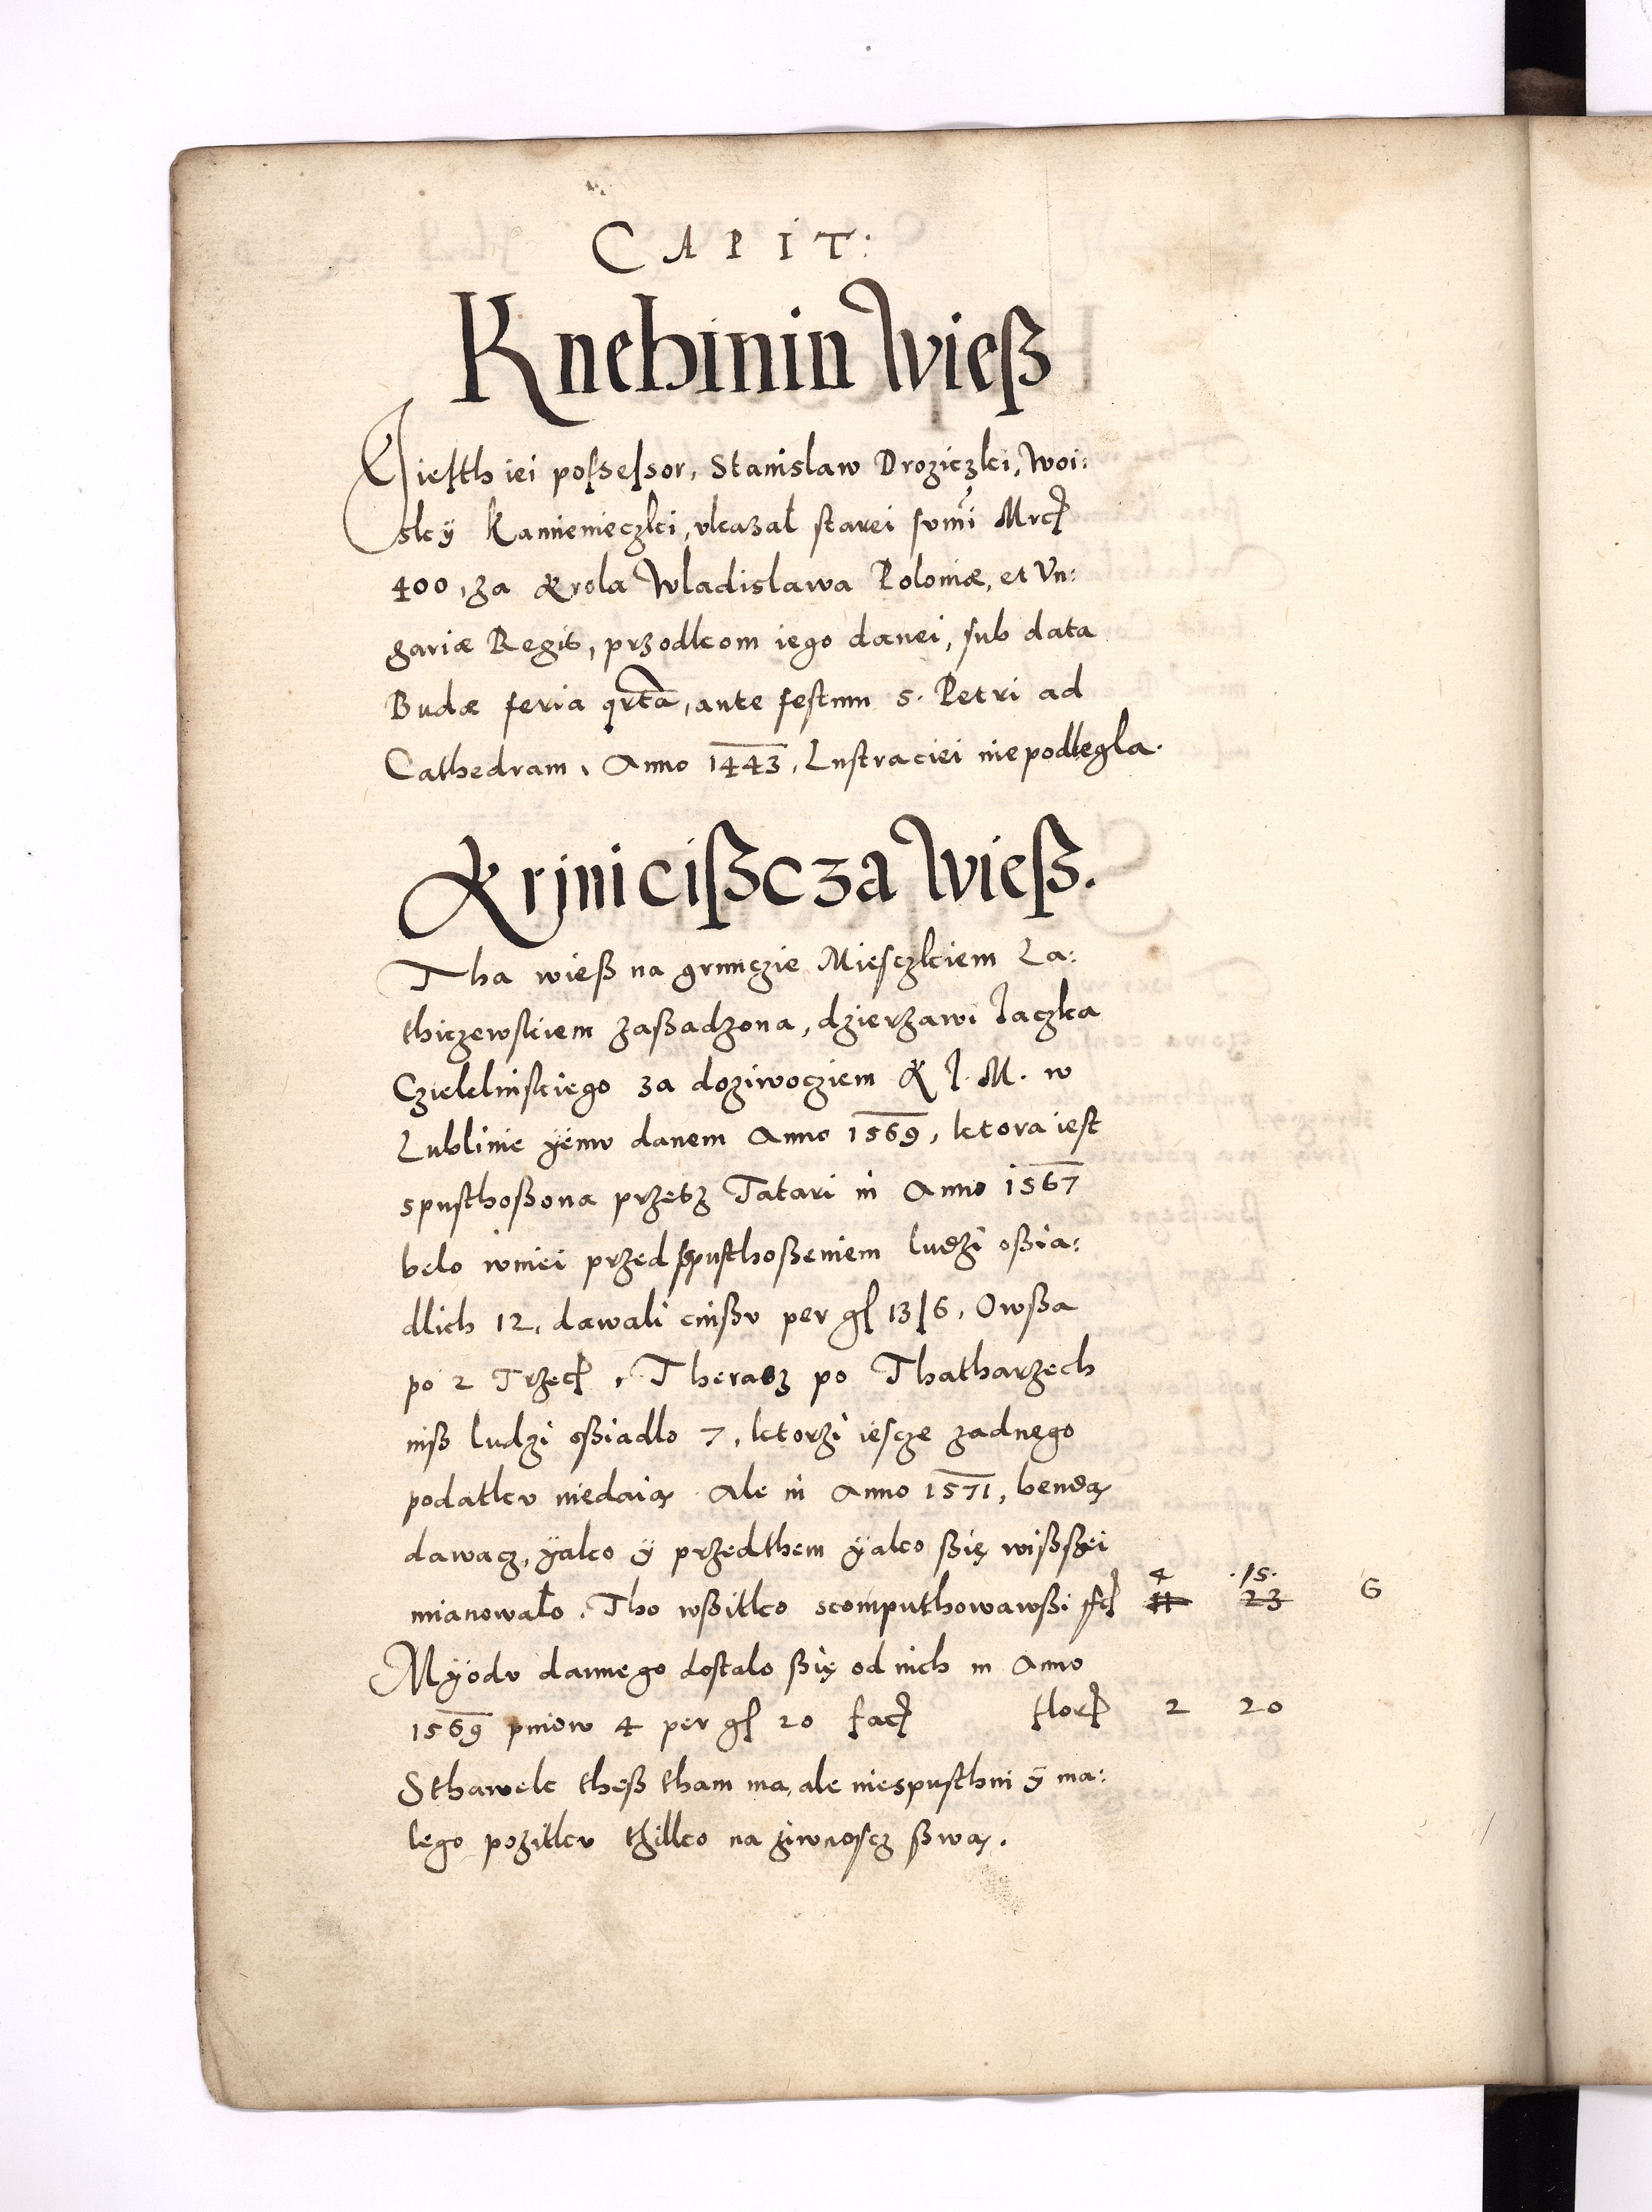 CAPIT:
Knehinin Wieß
Jiesth iei possessor, Stanislaw Drozieczki, Woi:
sky Kamienieczki, vkazał starei sumi Mrcƺ
400, za Krola Wladislawa Poloniæ, et Vn:
gariæ Regis, przodkom iego danei, sub data
Budæ feria qrta, ante festum S. Petri ad
Cathedram, Anno 1443, Lustraciei niepodlegla.
Krjnicißcza Wieß.
Tha wieß na grunczie Miesczkiem La:
thiczewskiem zaßadzona, dzierzawi Jaczka
Czielelinskiego za doziwocziem K J. M. w
Lublinie ÿemv danem Anno 1569, ktora iest
spusthoßona przesz Tatari in Anno 1567
belo wniei przed spusthoßeniem ludzi oßia:
dlich 12, dawali cinßv per gl 13/6, Owßa
po 2 Trzec, Therasz po Thatharzech
niß ludzi oßiadlo 7, ktorzi iescze zadnego
podatkv niedaią. Ale in Anno 1571, bendą
dawacz, ÿako ÿ przedthem ÿako ßię wißßei
mianowało. Tho wßitko scomputhowawßi fc 11 4 23 .15. 6
Mÿodv dannego dostalo ßię od nich in Anno
1569 pniow 4 per gl 20 fac flor 2 20
Sthawek theß tham ma, ale niespusthni ÿ ma:
lego pozitkv thilko na ziwnoscz ßwą.